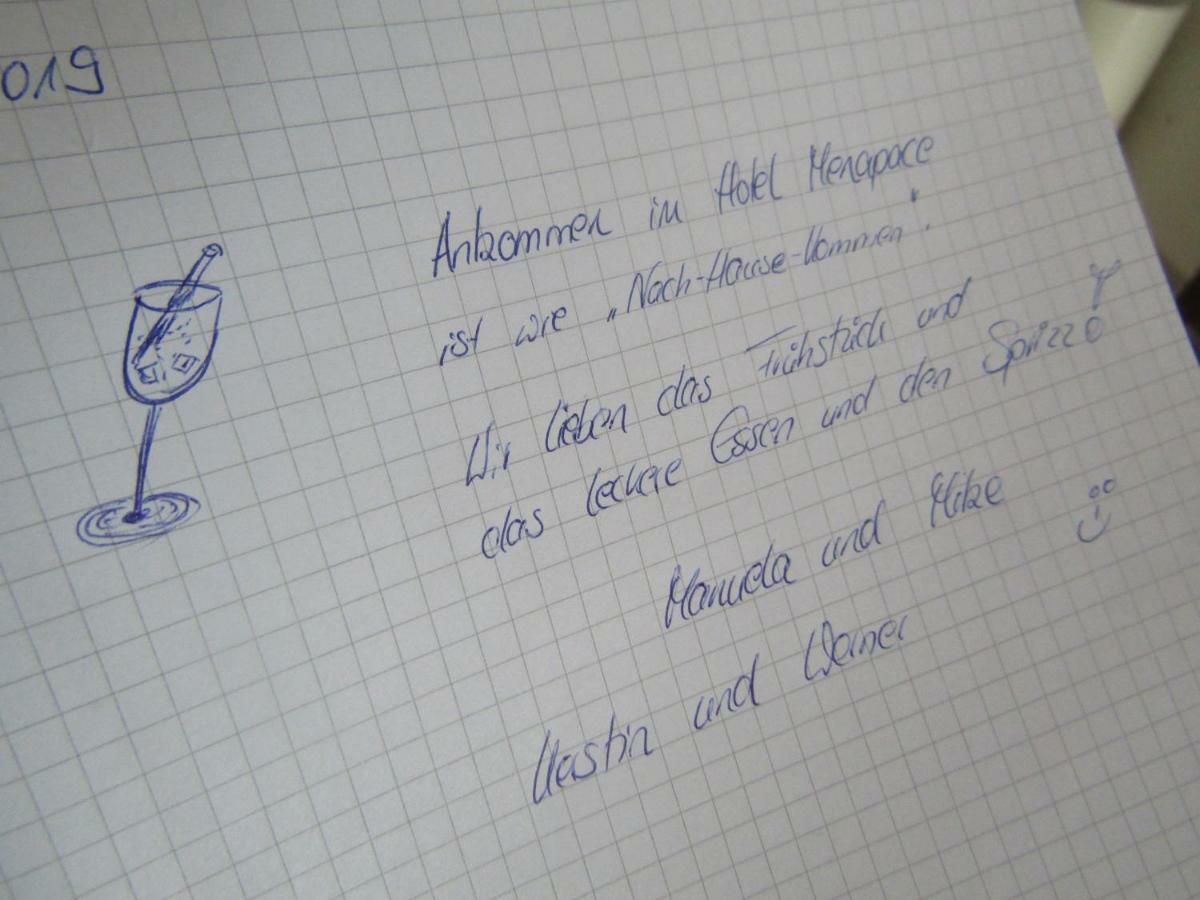 019
Ankommen im Hotel Menapace
ist wie „Nach-Hause-kommen“.
Wir lieben das Frühstück und
das leckere Essen und den Sprizz
Manuela und Mike
Kerstin und Werner